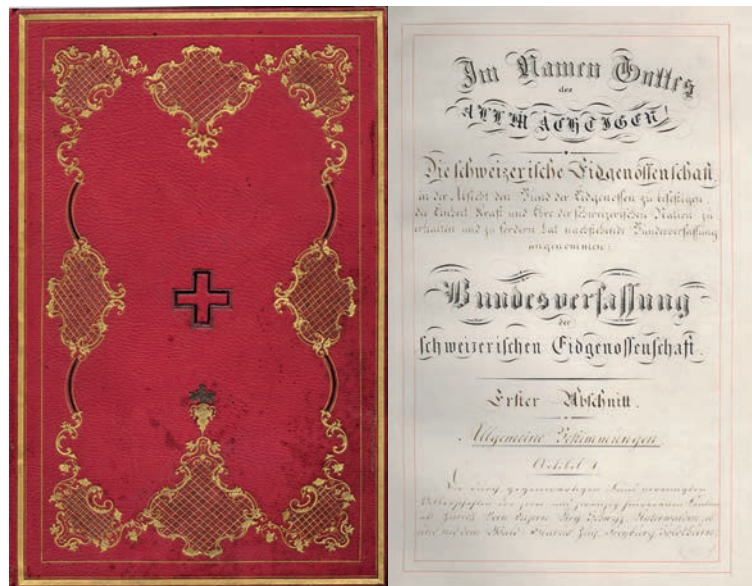 Im Namen Gottes
des
ALLMÄCHTIGEN!
Die schweizerische Eidgenossenschaft,
in der Absicht den Bund der Eidgenossen zu befestigen,
die Einheit Kraft und Ehre der schweizerischen Nation zu
erhalten und zu fördern hat nachstehende Bundesverfassung
angenommen:
Bundesverfassung
der
schweizerischen Eidgenossenschaft.
Erster Abschnitt.
Allgemeine Bestimmungen
Artikel 1
Die durch gegenwärtigen Bund vereinigten
Völkerschaften der zwei und zwanzig souveränen Kantone
als Zürich Bern Luzern Ury Schwyz Unterwalden
Glarus Zug Freyburg Solothurn